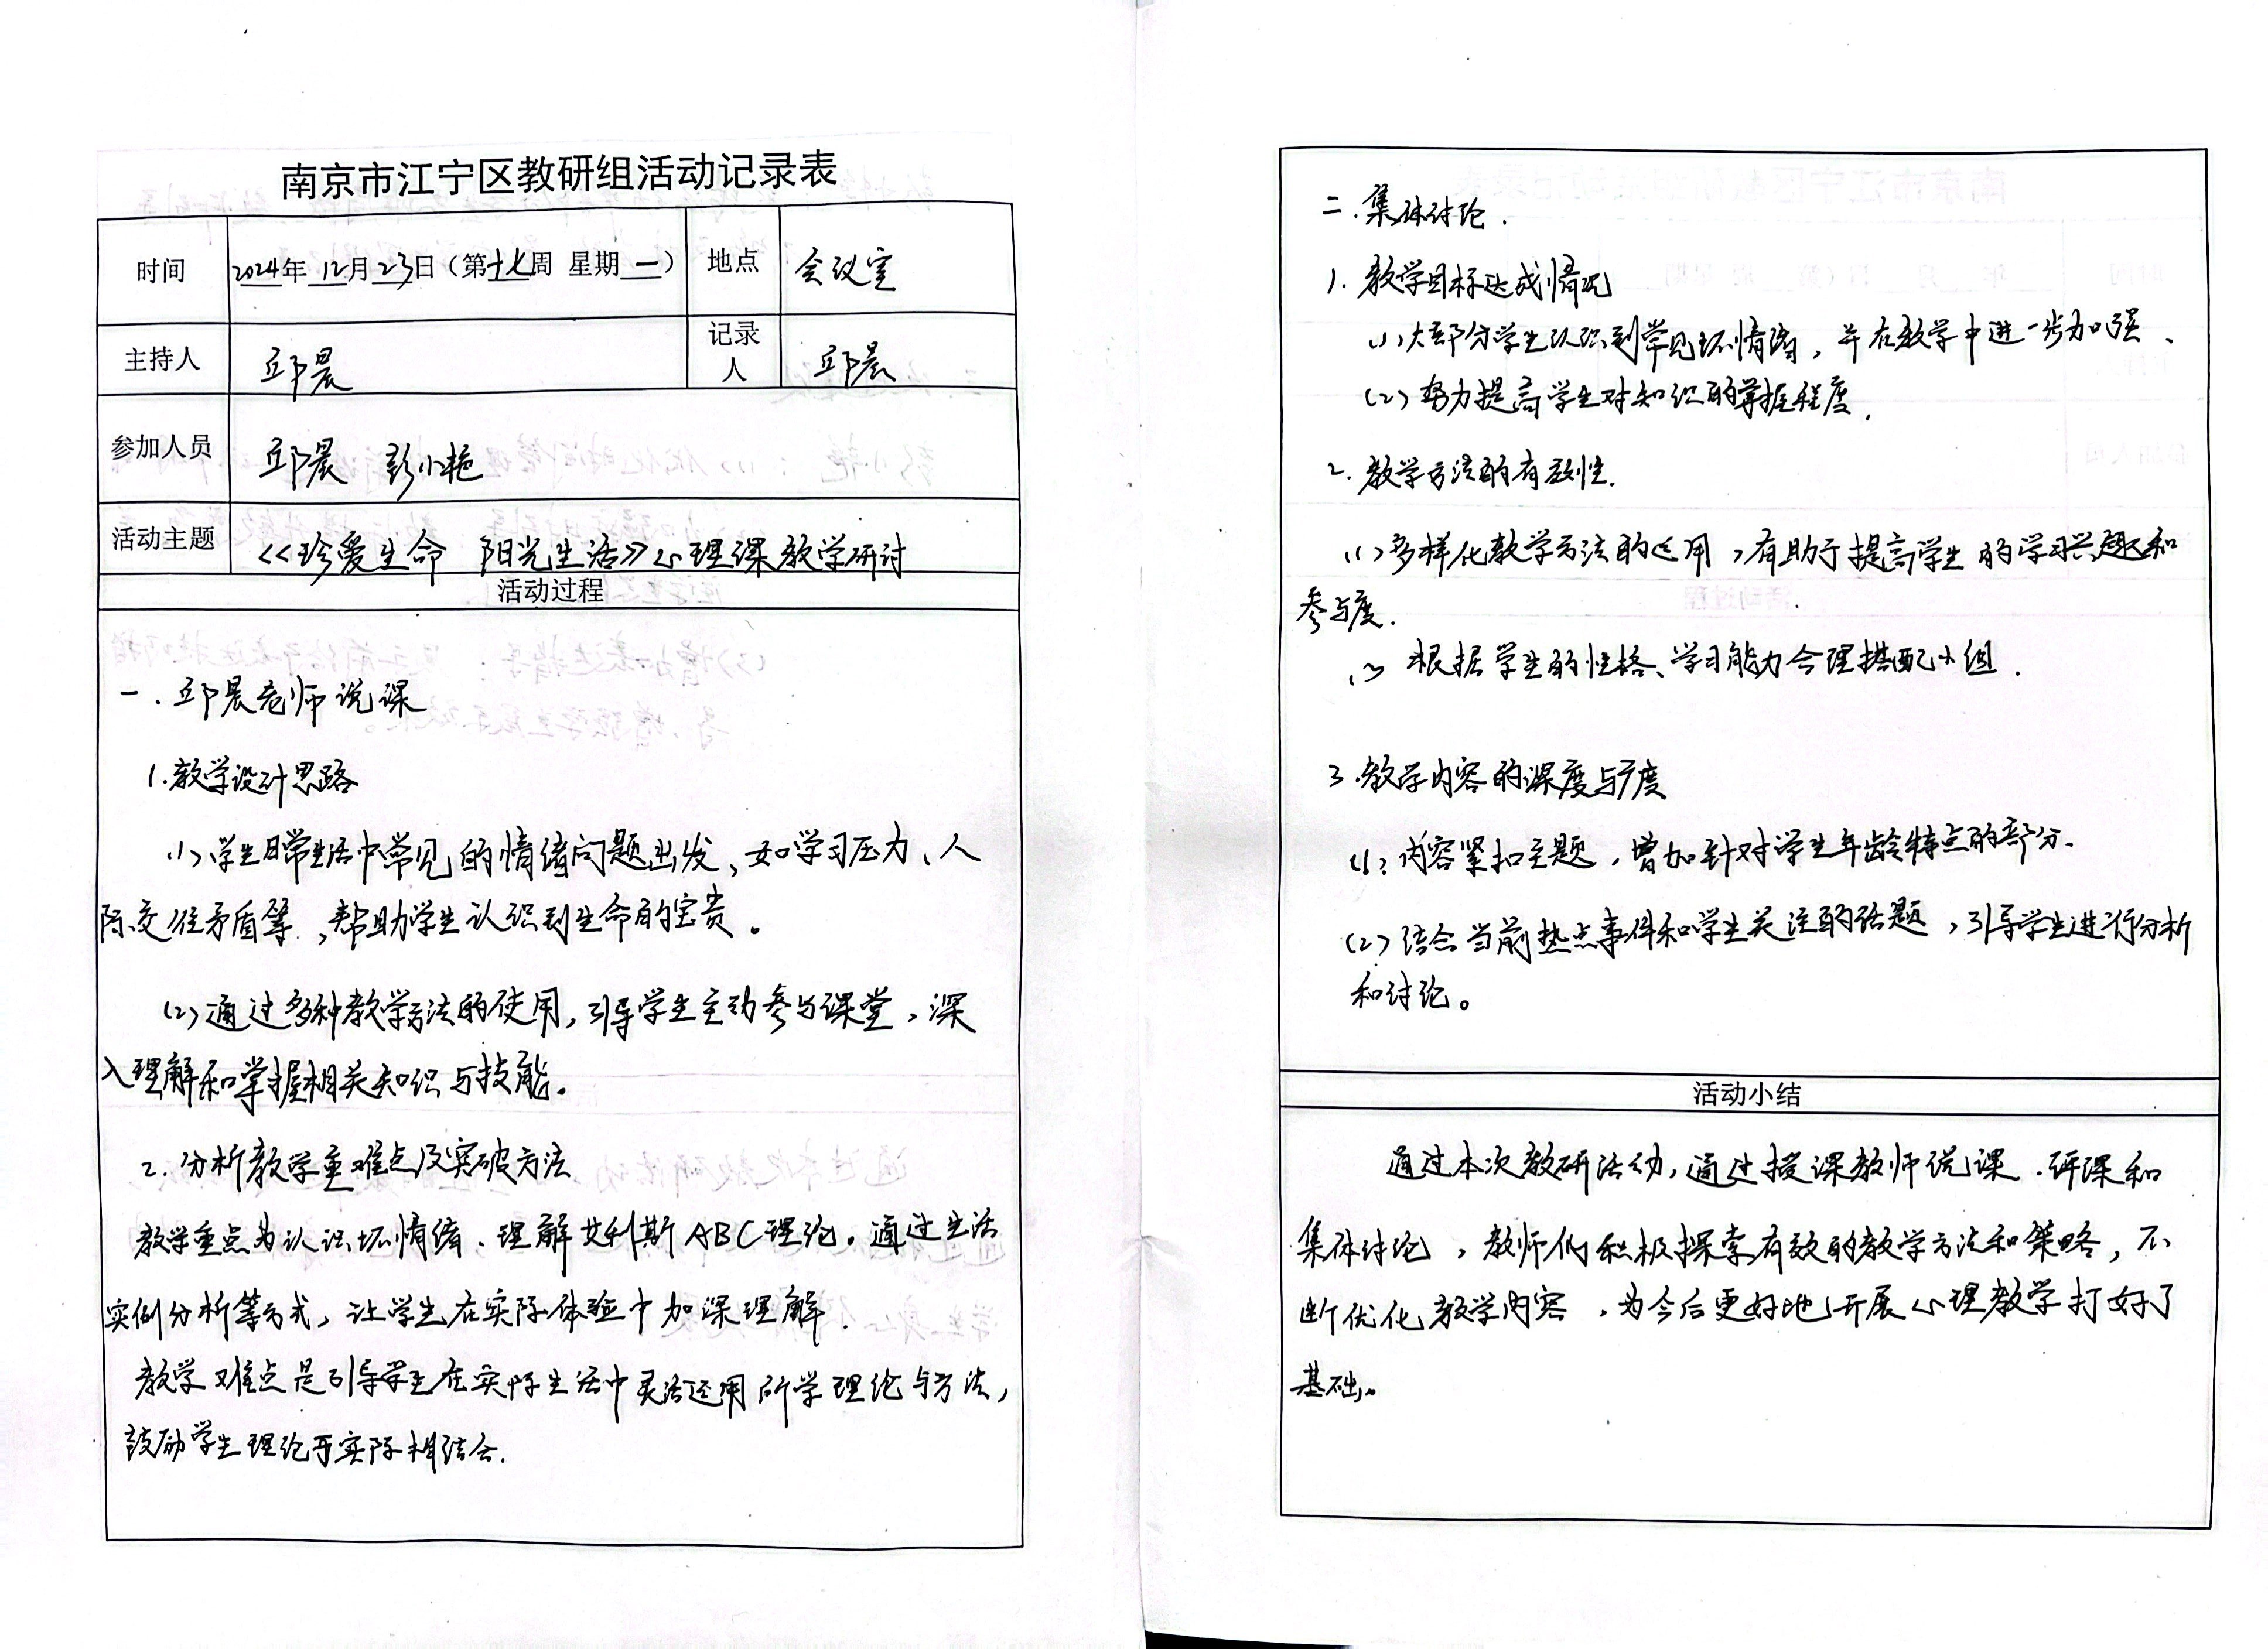 南京市江宁区教研组活动记录表
时间 2024年 12月 23日（第十七周 星期一） 地点 会议室
主持人 邱晨 记录人 邱晨
参加人员 邱晨 彭小艳
活动主题 《珍爱生命 阳光生活》心理课教学研讨
活动过程
一.邱晨老师说课
1.教学设计思路
(1)学生日常生活中常见的情绪问题出发、如学习压力、人
际交往矛盾等,帮助学生认识到生命的宝贵。
(2)通过多种教学方法的使用,引导学生主动参与课堂,深
入理解和掌握相关知识与技能。
2.分析教学重难点及突破方法
教学重点为认识坏情绪、理解艾利斯ABC理论。通过生活
实例分析等方式,让学生在实际体验中加深理解.
教学难点是引导学生在实际生活中灵活运用所学理论与方法,
鼓励学生理论与实际相结合.
二.集体讨论.
1.教学目标达成情况
(1)大部分学生认识到常见坏情绪,并在教学中进一步加强、
(2)努力提高学生对知识的掌握程度.
2.教学方法的有效性.
(1)多样化教学方法的运用,有助于提高学生的学习兴趣和
参与度.
(2)根据学生的性格、学习能力合理搭配小组.
3.教学内容的深度与广度
(1):内容紧扣主题,增加针对学生年龄特点的部分.
(2)结合当前热点事件和学生关注的话题,引导学生进行分析
和讨论。
活动小结
通过本次教研活动,通过授课教师说课.评课和
集体讨论,教师们积极探索有效的教学方法和策略,不
断优化教学内容,为今后更好地开展心理教学打好了
基础。